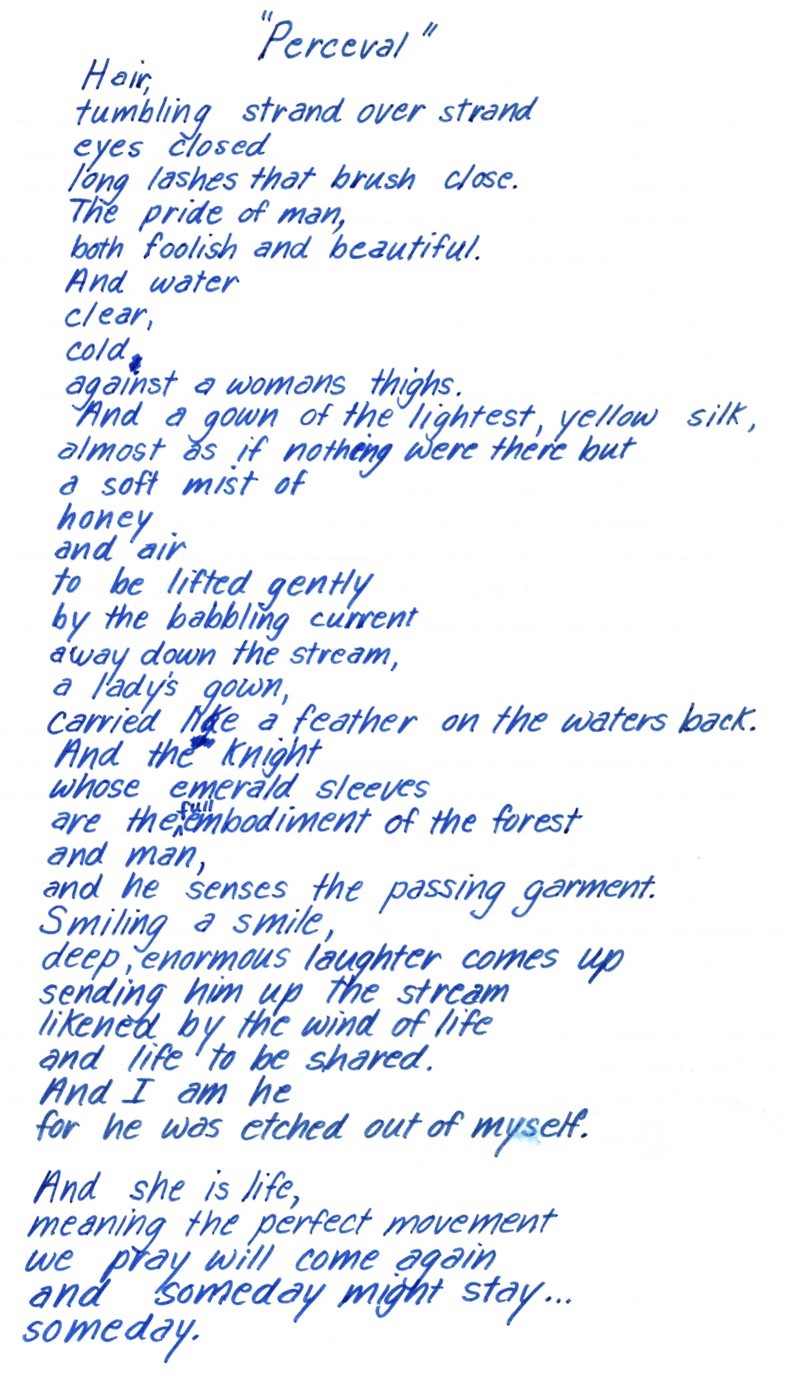 "Perceval"
Hair,
tumbling strand over strand
eyes closed
long lashes that brush close.
The pride of man,
both foolish and beautiful.
And water
clear,
cold,
against a womans thighs.
And a gown of the lightest, yellow silk,
almost as if nothing were there but
a soft mist of
honey
and air
to be lifted gently
by the babbling current
away down the stream,
a lady's gown,
carried like a feather on the waters back.
And the Knight
whose emerald sleeves
are the full embodiment of the forest
and man,
and he senses the passing garment.
Smiling a smile,
deep, enormous laughter comes up
sending him up the stream
likened by the wind of life
and life to be shared.
And I am he
for he was etched out of myself.
And she is life,
meaning the perfect movement
we pray will come again
and someday might stay...
someday.